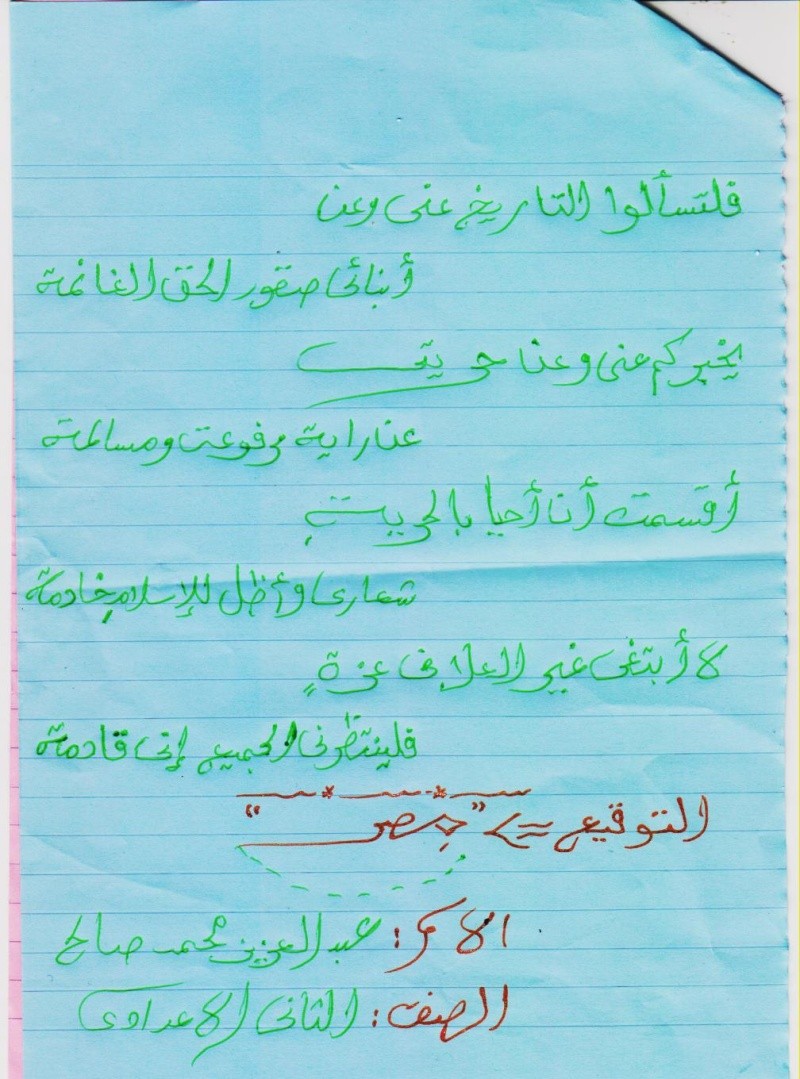 فلتسألوا التاريخ عنى وعن
أبنائى صقور الحق الغانمة
يخبركم عنى وعن حريتى
عن راية مرفوعة ومسالمة
أقسمت أن أحيا بالحرية
شعارى وأظل للإسلام خادمة
لا أبتغى غير العلا فى عزةٍ
فلينتظرنى الجميع إنى قادمة
التوقيع => "مصر"
الاسم: عبد العزيز محمد صالح
الصف: الثانى الاعدادى